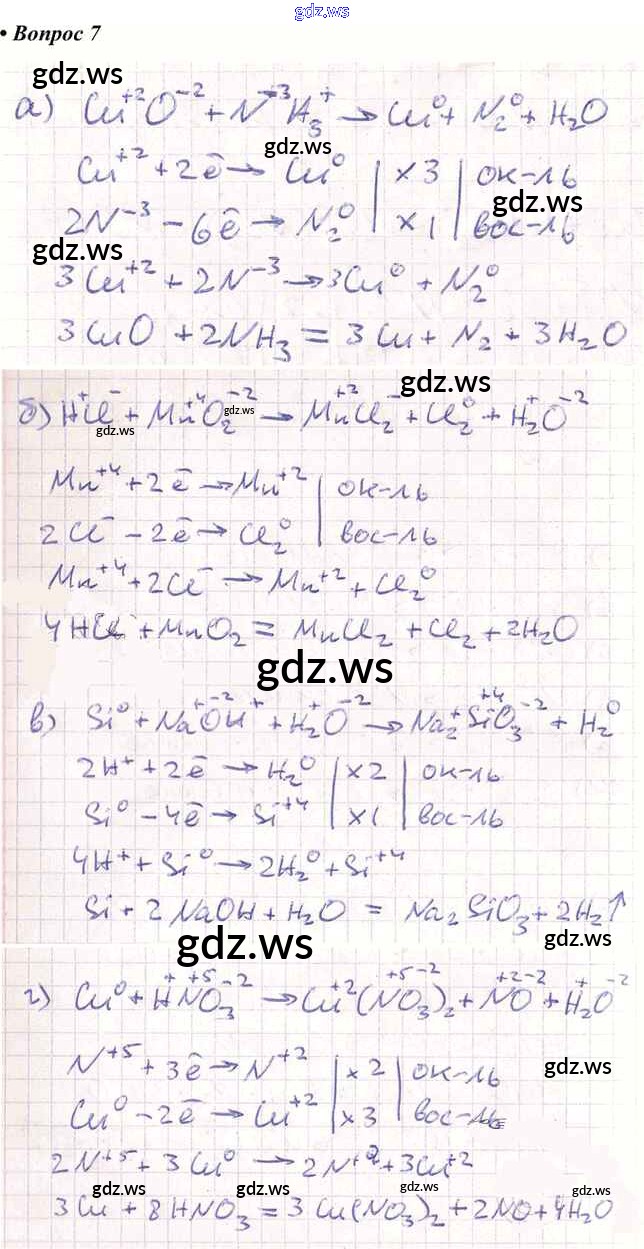 gdz.ws
• Вопрос 7
gdz.ws
а) Cu⁺²O⁻² + N⁻³H₃⁺ → Cu⁰ + N₂⁰ + H₂O
gdz.ws
Cu⁺² + 2ē → Cu⁰ | ×3 | ок-ль
gdz.ws
2N⁻³ - 6ē → N₂⁰ | ×1 | вос-ль
gdz.ws
3Cu⁺² + 2N⁻³ → 3Cu⁰ + N₂⁰
3CuO + 2NH₃ = 3Cu + N₂ + 3H₂O
gdz.ws
б) H⁺Cl⁻ + Mn⁺⁴O₂⁻² → Mn⁺²Cl₂⁻ + Cl₂⁰ + H₂⁺O⁻²
gdz.ws
gdz.ws
Mn⁺⁴ + 2ē → Mn⁺² | ок-ль
2Cl⁻ - 2ē → Cl₂⁰ | вос-ль
Mn⁺⁴ + 2Cl⁻ → Mn⁺² + Cl₂⁰
4HCl + MnO₂ = MnCl₂ + Cl₂ + 2H₂O
gdz.ws
в) Si⁰ + Na⁺O⁻²H⁺ + H₂⁺O⁻² → Na₂⁺Si⁺⁴O₃⁻² + H₂⁰
2H⁺ + 2ē → H₂⁰ | ×2 | ок-ль
Si⁰ - 4ē → Si⁺⁴ | ×1 | вос-ль
4H⁺ + Si⁰ → 2H₂⁰ + Si⁺⁴
Si + 2NaOH + H₂O = Na₂SiO₃ + 2H₂↑
gdz.ws
gdz.ws
г) Cu⁰ + H⁺N⁺⁵O₃⁻² → Cu⁺²(N⁺⁵O₃⁻²)₂ + N⁺²O⁻² + H₂⁺O⁻²
N⁺⁵ + 3ē → N⁺² | ×2 | ок-ль
gdz.ws
Cu⁰ - 2ē → Cu⁺² | ×3 | вос-ль
2N⁺⁵ + 3Cu⁰ → 2N⁺² + 3Cu⁺²
gdz.ws
gdz.ws
gdz.ws
gdz.ws
3Cu + 8HNO₃ = 3Cu(NO₃)₂ + 2NO + 4H₂O